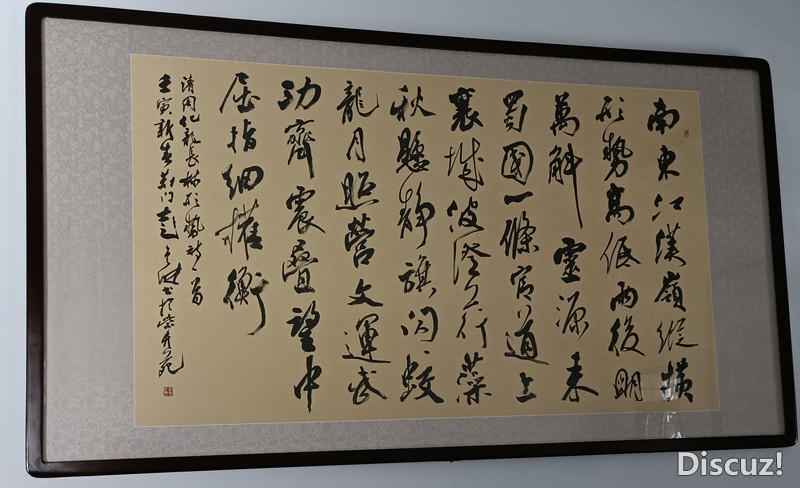 南東江漢嶺縱橫
形勢高低雨後明
萬斛靈源來
蜀國一條官道上
襄城波澄行藻
秋懸靜旗閃蛟
龍月照營文運武
功齊震疊望中
屈指細權衡
清周化龍長林形勢詩一首
壬寅新春荊門
Discuz!